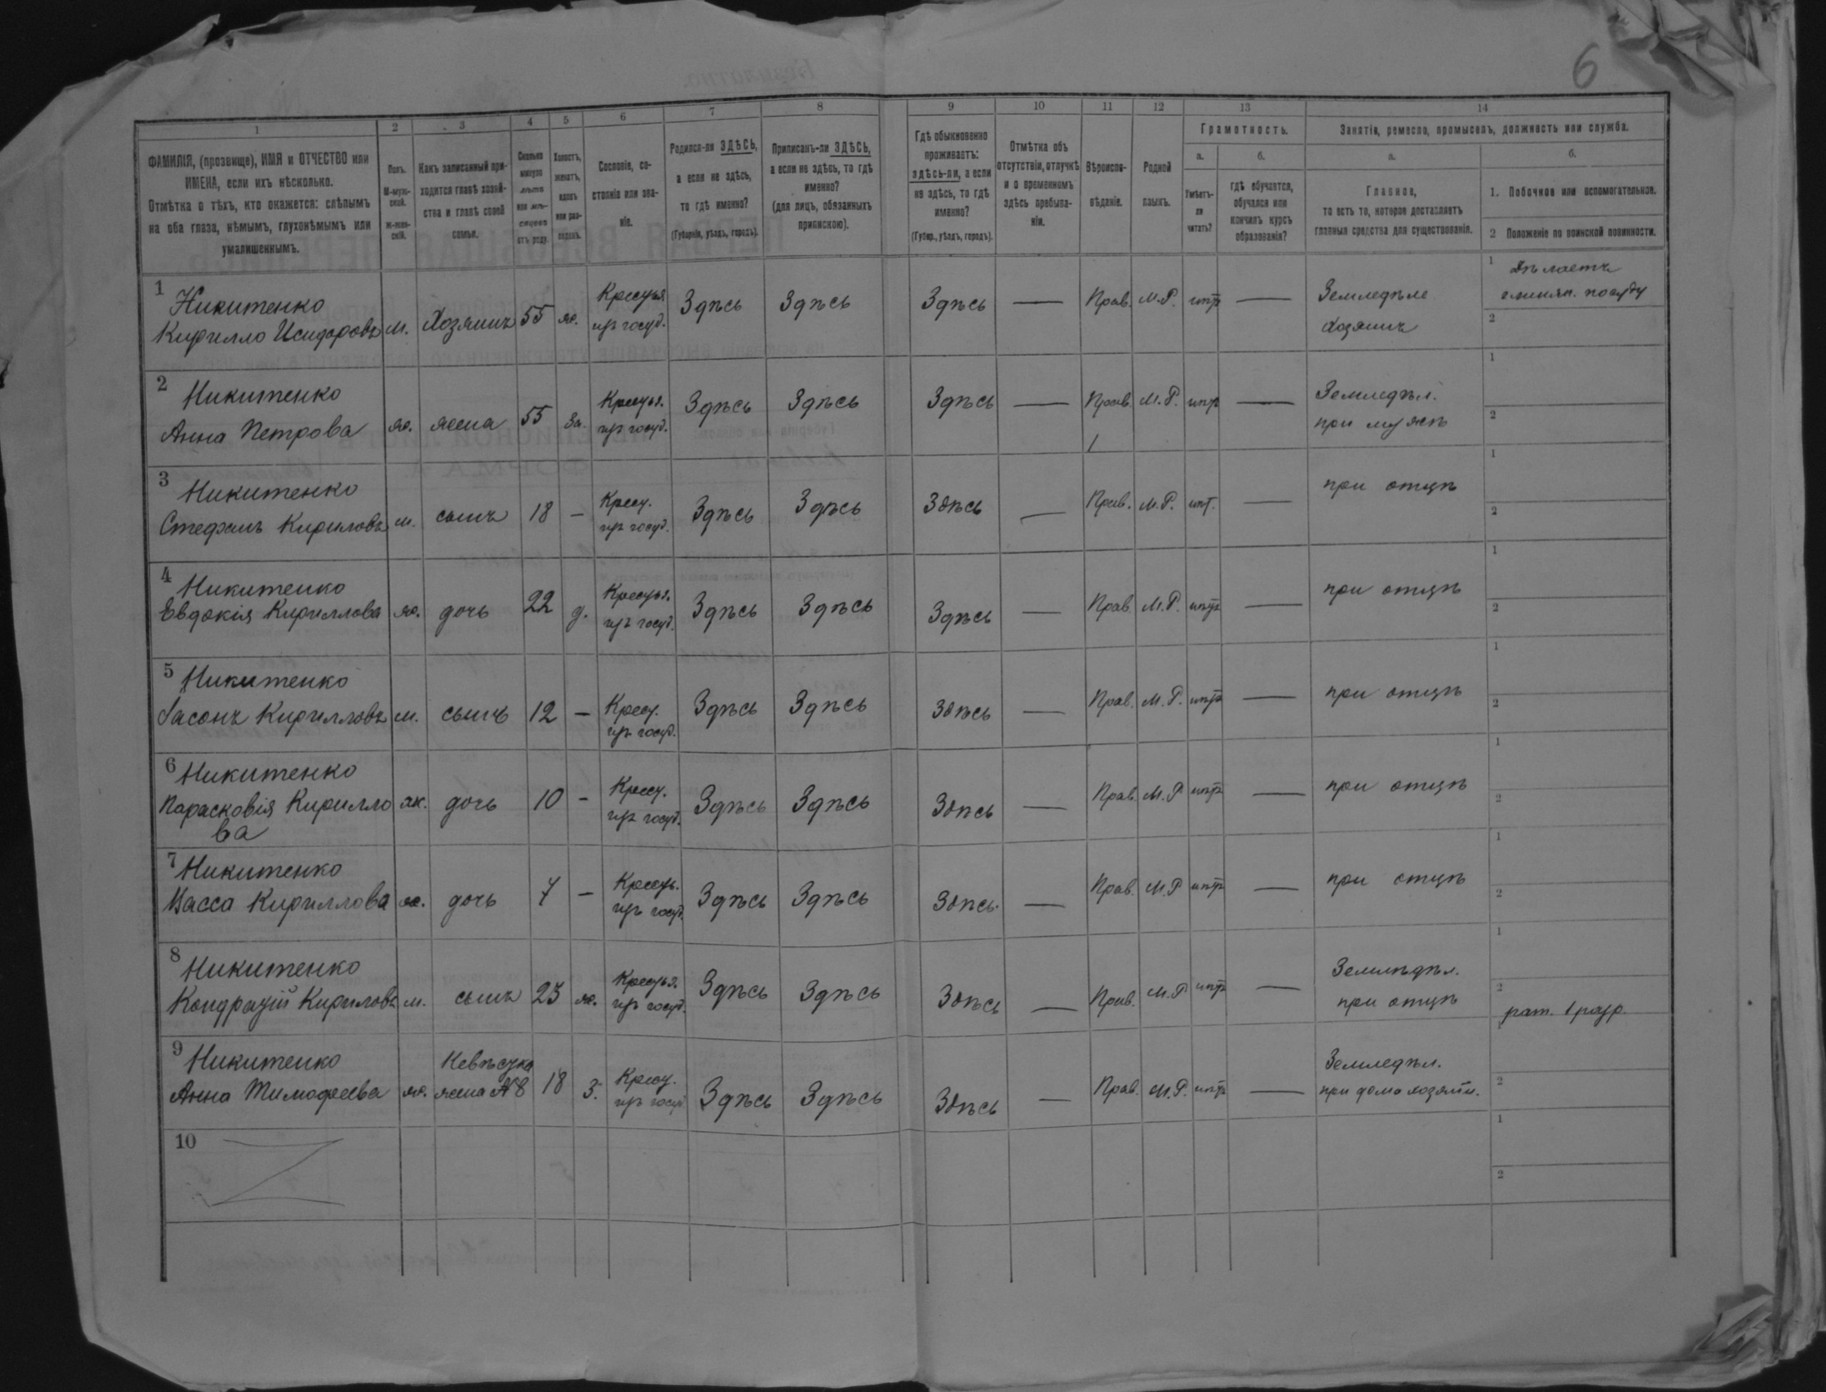 6
1 2 3 4 5 6 7 8 9 10 11 12 13 14
ФАМИЛІЯ, (прозвище), ИМЯ и ОТЧЕСТВО или
ИМЕНА, если ихъ нѣсколько.
Отмѣтка о тѣхъ, кто окажется: слѣпымъ
на оба глаза, нѣмымъ, глухонѣмымъ или
умалишеннымъ.
Полъ.
М-муж-
ской.
Ж-жен-
скій.
Какъ записанный при-
ходится главѣ хозяй-
ства и главѣ своей
семьи.
Сколько
минуло
лѣтъ
или мѣ-
сяцевъ
отъ роду.
Холостъ,
женатъ,
вдовъ
или раз-
веденъ.
Сословіе, со-
стояніе или зва-
ніе.
Родился-ли ЗДѢСЬ,
а если не здѣсь,
то гдѣ именно?
(Губернія, уѣздъ, городъ).
Приписанъ-ли ЗДѢСЬ,
а если не здѣсь, то гдѣ
именно?
(для лицъ, обязанныхъ
припискою).
Гдѣ обыкновенно
проживаетъ:
здѣсь-ли, а если
не здѣсь, то гдѣ
именно?
(Губер., уѣздъ, городъ).
Отмѣтка объ
отсутствіи, отлучкѣ
и о временномъ
здѣсь пребыва-
ніи.
Вѣроиспо-
вѣданіе.
Родной
языкъ.
Грамотность.
а.
Умѣетъ-
ли
читать?
б.
гдѣ обучается,
обучался или
кончилъ курсъ
образованія?
Занятіе, ремесло, промыселъ, должность или служба.
а.
Главное,
то есть то, которое доставляетъ
главныя средства для существованія.
б.
1. Побочное или вспомогательное.
2 Положеніе по воинской повинности.
1 Никитенко
Кирилло Исидоровъ м. Хозяинъ 55 ж. Здѣсь Здѣсь Здѣсь — Прав. М.Р. — Земледѣліе
Хозяинъ
1 дѣлаетъ
посуду
2
2 Никитенко
Анна Петрова ж. жена 55 За. Крестья. Здѣсь Здѣсь Здѣсь — Прав. М.Р. — Земледѣл.
при мужѣ
1
2
3 Никитенко
Стефанъ Кириловъ м. сынъ 18 — Здѣсь Здѣсь Здѣсь — Прав. М.Р. — при отцѣ
1
2
4 Никитенко
Евдокія Кириллова ж. дочь 22 д. Крестья. Здѣсь Здѣсь Здѣсь — Прав. М.Р. — при отцѣ
1
2
5 Никитенко
Іасонъ Кирилловъ м. сынъ 12 — Здѣсь Здѣсь Здѣсь — Прав. М.Р. — при отцѣ
1
2
6 Никитенко
Парасковія Кирилло
ва ж. дочь 10 — Здѣсь Здѣсь Здѣсь — Прав. М.Р — при отцѣ
1
2
7 Никитенко
Васса Кириллова ж. дочь 7 — Здѣсь Здѣсь Здѣсь — Прав. М.Р — при отцѣ
1
2
8 Никитенко
Кондратій Кириловъ м. сынъ 23 ж. Крестья. Здѣсь Здѣсь Здѣсь — Прав. М.Р — Земледѣл.
при отцѣ
1
2
рат. 1 разр.
9 Никитенко
Анна Тимофеева ж. Невѣстка
жена №8 18 З. Здѣсь Здѣсь Здѣсь — Прав. М.Р. — Земледѣл.
при домохозяин.
1
2
10
1
2